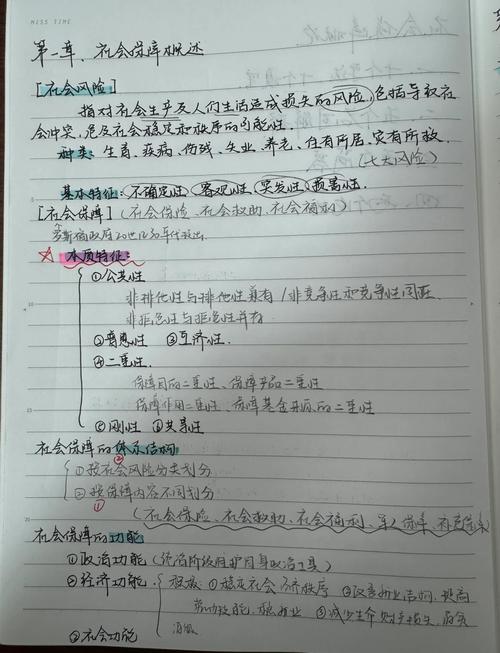 MISS TIME
第一章、社会保障概述
[社会风险]
指对社会生产及人们生活造成损失的风险,包括导致社
会冲突,危及社会稳定和秩序的可能性.
种类:生育、疾病、伤残、失业、养老、住有所居、灾有所救.
(七大风险)
基本特征:不确定性、客观性、突发性、损害性.
[社会保障](社会保险、社会救助、社会福利)
罗斯福政府20世纪30年代提出.
本质特征:
①公共性
非排他性与排他性兼有/非竞争性和竞争性同在.
非拒绝性与拒绝性并存.
②普惠性 ③互济性.
④二重性.
保障目的二重性、保障产品二重性
保障作用二重性、保障基金来源的二重性
⑤刚性 ⑥共享性
社会保障的体系结构
②
①按社会风险分类划分
②按保障内容不同划分
①
(社会保险、社会救助、社会福利、军人保障、补充保障)
社会保障的功能
①政治功能(统治阶级维护自身政治工具)
②经济功能. 积极 ①稳定社会经济秩序 ②改善就业结构、提高
劳动技能、稳就业 ③减少生命财产损失、
消极
③社会功能